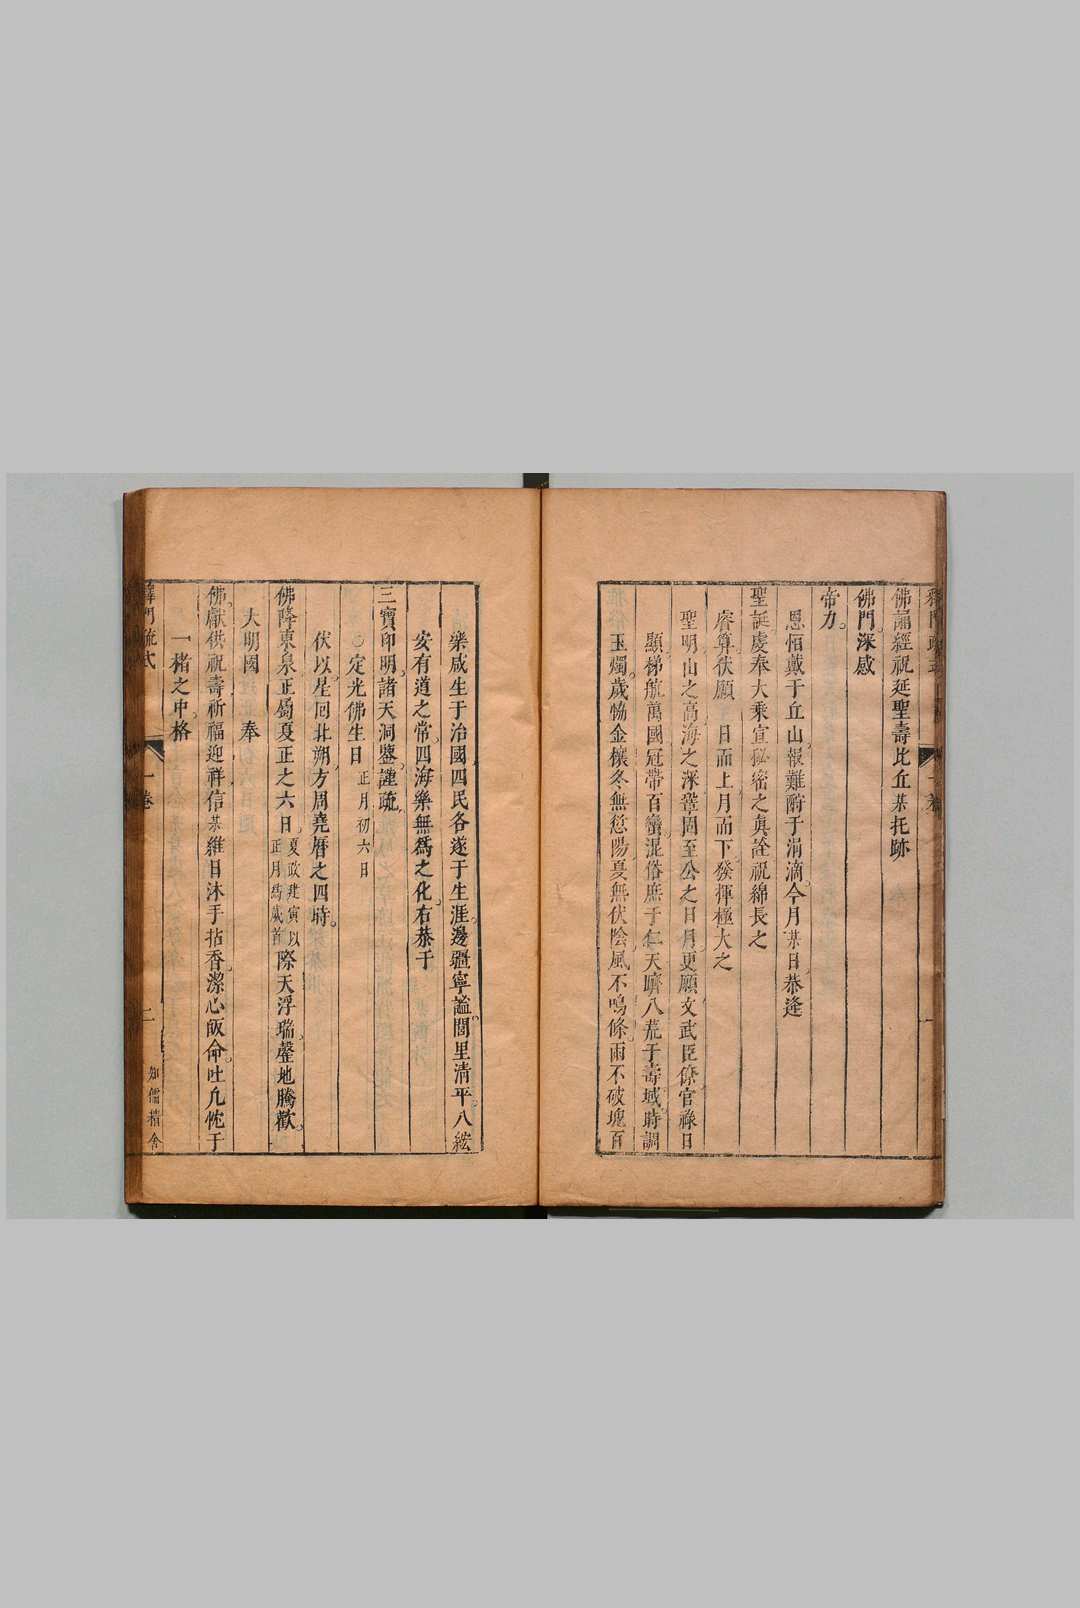 佛誦經祝延聖壽比丘某托跡
佛門深感
帝力。
恩怕戴于丘山報難酧于涓滴。今月某日恭逢
聖誕虔奉大乘宣秘密之真詮祝綿長之
睿算伏願 日而上月而下發揮極大之
聖明山之高海之深鞏固至公之日月更願文武臣僚官祿日
顯梯航萬國冠帶百蠻混俗庶于仁天躋八荒于壽域時調
玉燭。歲恊金穰冬無愆陽夏無伏陰風不鳴條。雨不破塊百
樂咸生于治國四民各遂于生涯。邊疆寧謐。閭里清平。八紘
安有道之常。四海樂無爲之化。右恭于
三寶印明。諸天洞鑒。謹疏
○定光佛生日 正月初六日
伏以。星回北朔。方周堯曆之四時。
佛降東泉正屬夏正之六日。夏政建寅以正月爲歲首際天浮瑞。罄地騰歡。
大明國 奉
佛。獻供祝壽祈福迎祥信某維日沐手拈香。潔心皈命。吐凡忱于
一楮之中。格
釋門疏式 一卷 二 知儒精舍